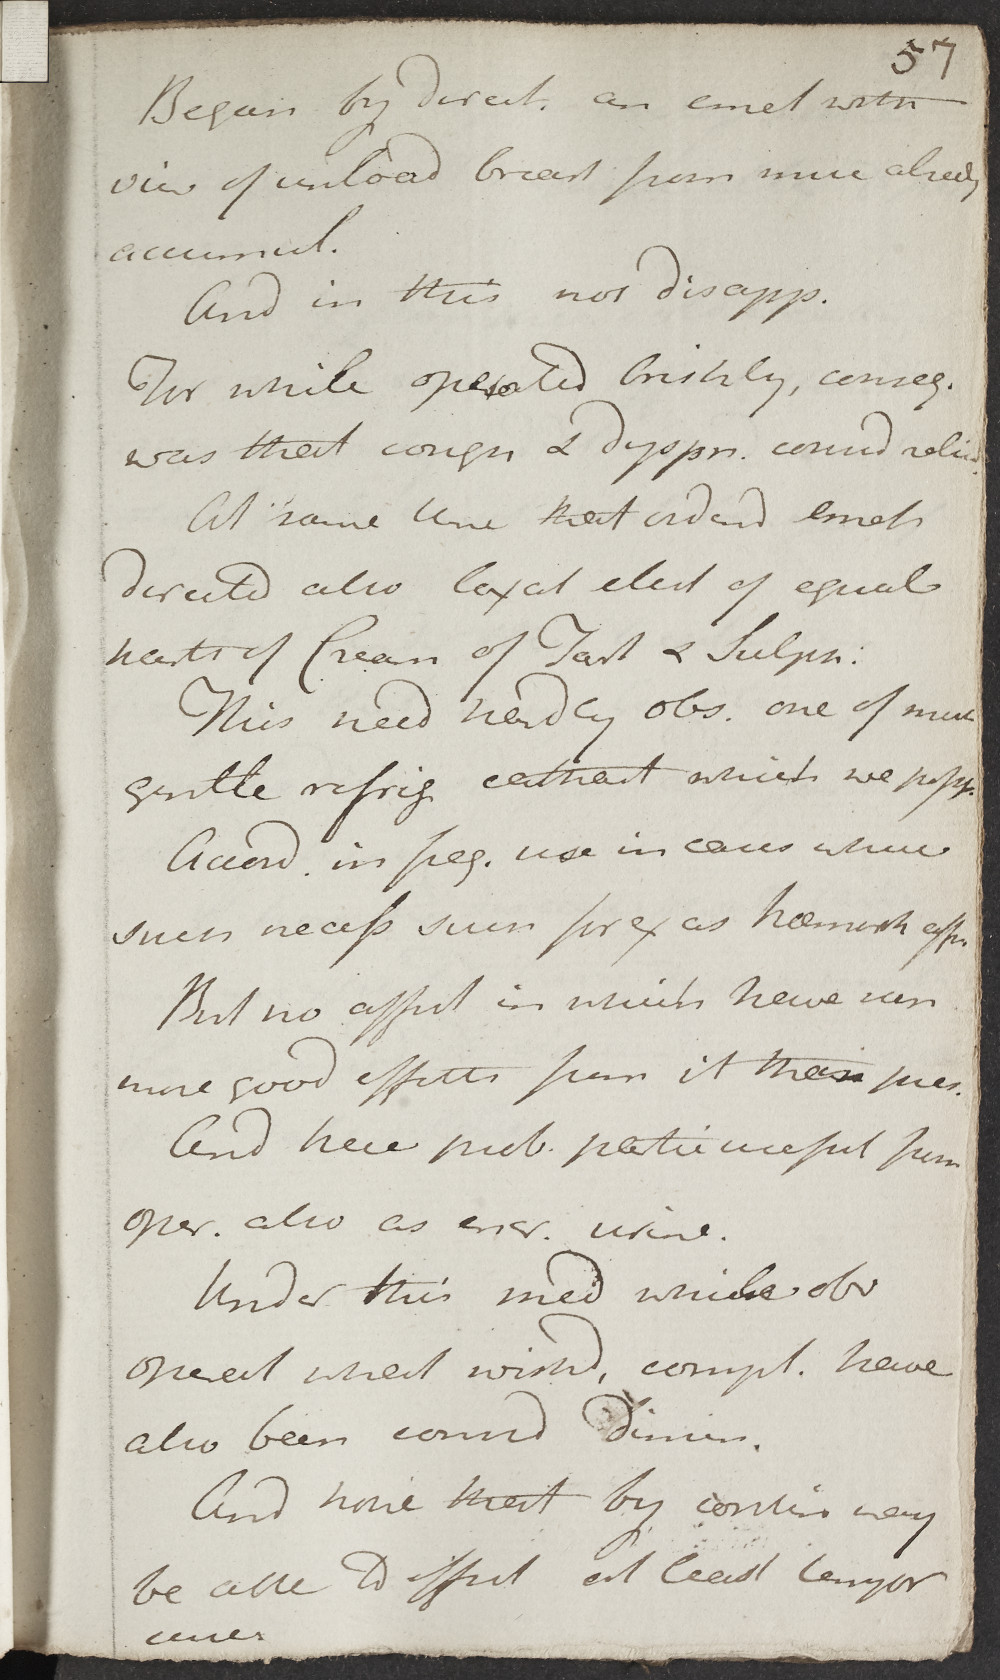 57
Began by direct. an emet with
view of unload breast from muc already
accumul.
And in this not disapp.
For while operated briskly, conseq.
was that cough & dyspn. consid reliev.
At same time that orderd emet
directed also laxat elect of equal
parts of Cream of Tart & Sulph:
This need hardly obs. one of most
gentle refrig cathart which we poss.
Accord. in freq. use in cases where
such necess such for ex as hæmorrh affn
But no affect in which have seen
more good effects from it than pres.
And here prob. partic useful from
oper. also as evac. urine.
Under this med while obs
operat what wishd, compl. have
also been consid dimin.
And hope that by contin may
be able to effect at least tempor
cure.